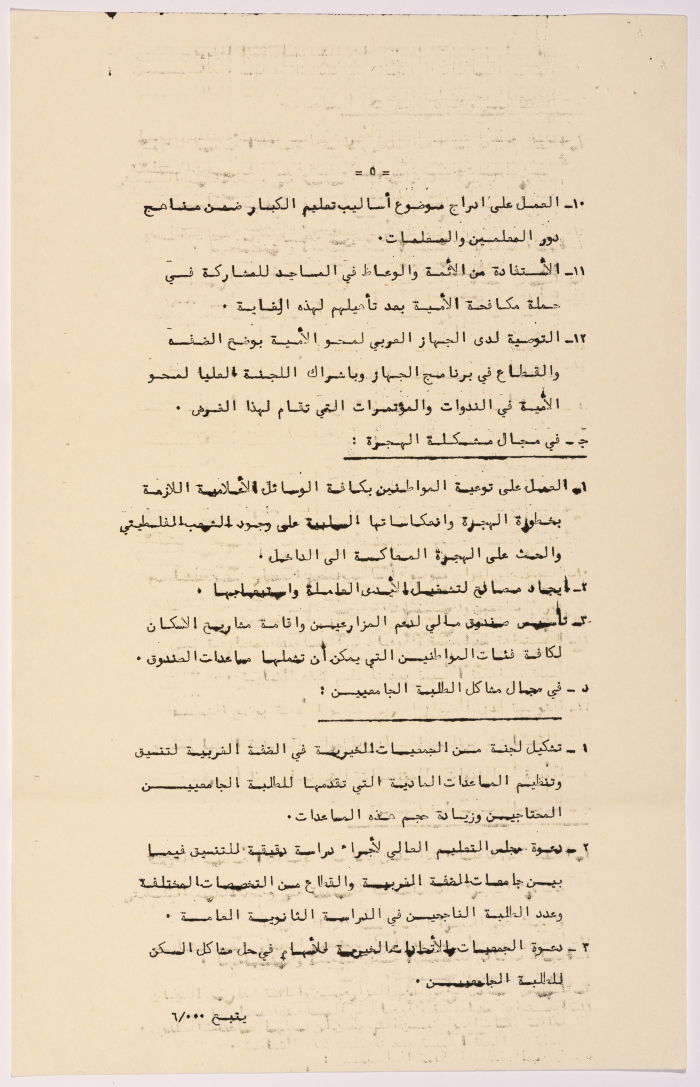 = ٥ =
١٠- العمل على ادراج موضوع أساليب تعليم الكبار ضمن مناهج
دور المعلمين والمعلمات.
١١- الأستفادة من الائمة والوعاظ في المساجد للمشاركة في
حملة مكافحة الأمية بعد تأهيلهم لهذه الغاية .
١٢- التوصية لدى الجهاز العربي لمحو الأمية بوضع الضفه
والقطاع في برنامج الجهاز وباشراك اللجنة العليا لمحو
الأمية في الندوات والمؤتمرات التي تقام لهذا الغرض .
جـ - في مجال مشكلة الهجرة :
١- العمل على توعية المواطنين بكافة الوسائل الأعلامية اللازمة
بخطورة الهجرة وانعكاساتها السلبية على وجود الشعب الفلسطيني
والحث على الهجرة المعاكسة الى الداخل .
٢- ايجاد مصانع لتشغيل الأيدى العاملة واستيعابها .
٣- تأسيس صندوق مالي لدعم المزارعين واقامة مشاريع الاسكان
لكافة فئات المواطنين التي يمكن أن تشملها مساعدات الصندوق .
د - في مجال مشاكل الطلبة الجامعيين :
١ - تشكيل لجنة من الجمعيات الخيرية في الضفة الغربية لتنسق
وتنظيم المساعدات المادية التي تقدمها للطلبة الجامعيين
المحتاجين وزيادة حجم هذه المساعدات.
٢ - دعوة مجلس التعليم العالي لأجراء دراسة دقيقة للتنسق فيما
بين جامعات الضفة الغربية والقطاع من التخصصات المختلفة
وعدد الطلبة الناجحين في الدراسة الثانوية العامة .
٣ - دعوة الجمعيات والأتحادات الخيرية للأسهام في حل مشاكل السكن
للطلبة الجامعيين .
يتبع ٦/٠٠٠